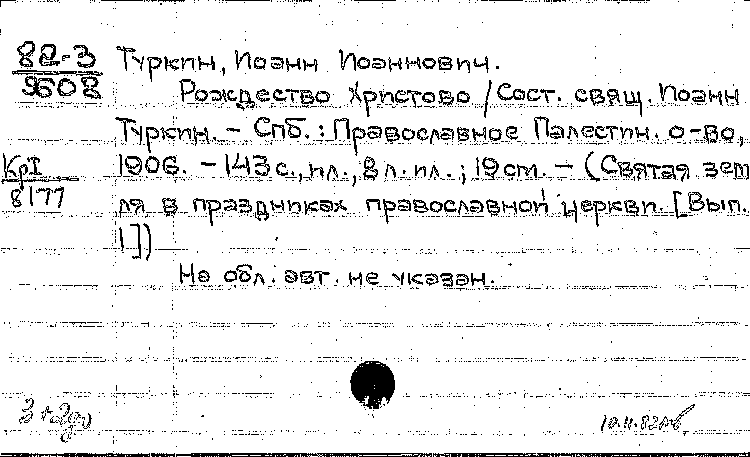 82-3
9608
Туркин, Иоанн Иоаннович.
Рождество Христово / Сост. свящ. Иоанн
Туркин. – Спб. : Православное Палестин. о-во,
КрI
8177
1906. – 143 с., ил., 8 л. ил. ; 19 cm. – (Святая зем
ля в праздниках православной церкви. [Вып.
1])
На обл. авт. не указан.
10.11.82